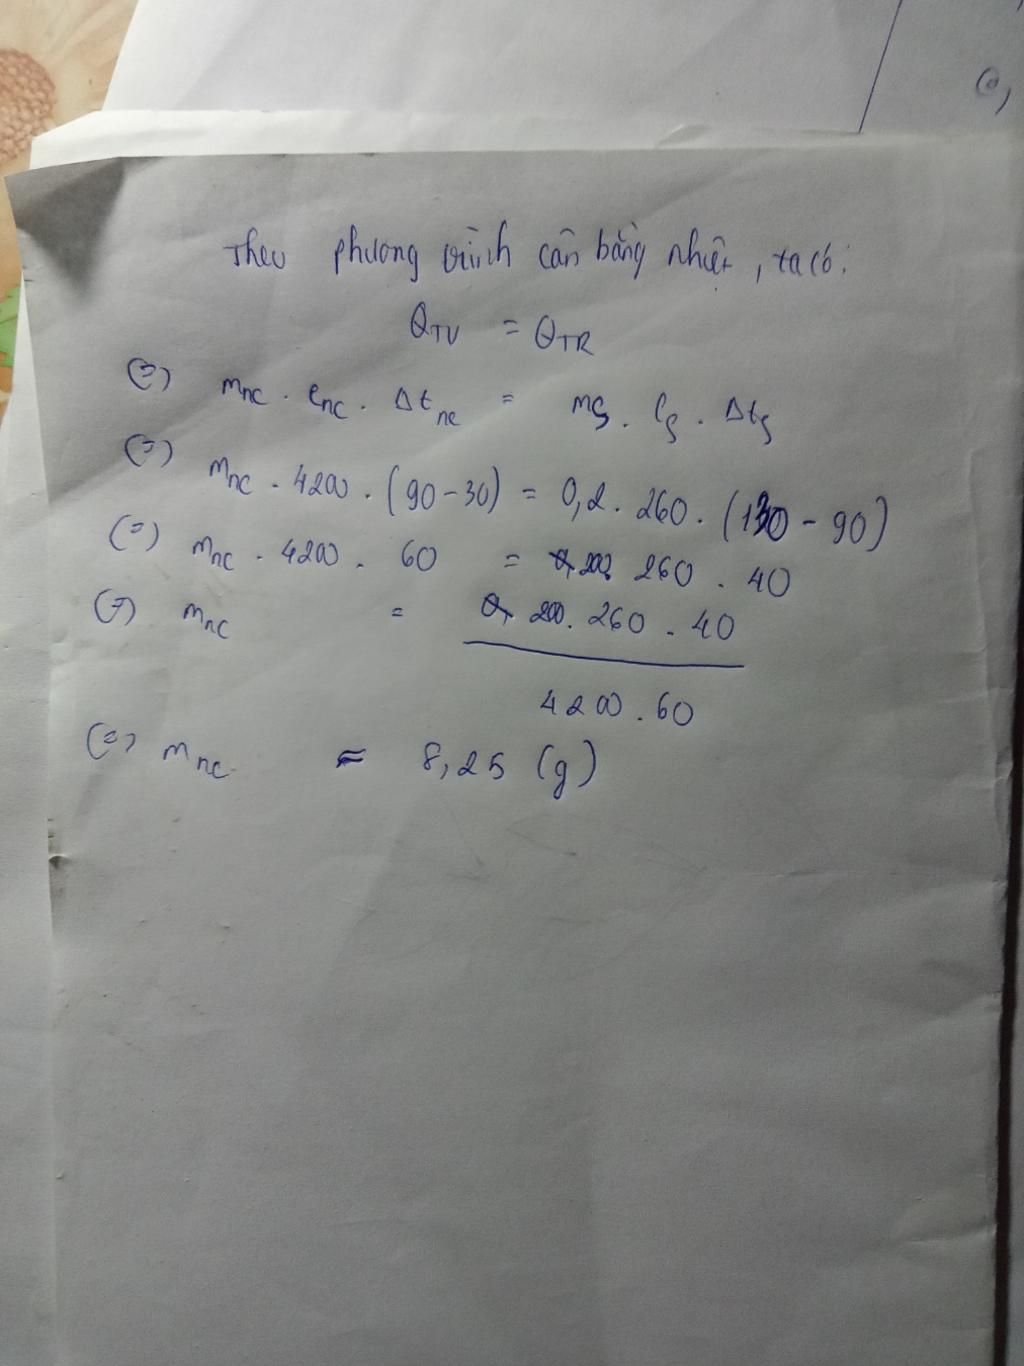 (a)
Theo phương trình cân bằng nhiệt, ta có:
QTV = QTR
(=) mnc . Cnc . Δtnc = mS . CS . ΔtS
(=) mnc . 4200 . (90-30) = 0,2 . 260 . (130 - 90)
(=) mnc . 4200 . 60 = 200. 260 . 40
(=) mnc = 200. 260 . 40
4200 . 60
(=) mnc ≈ 8,25 (g)